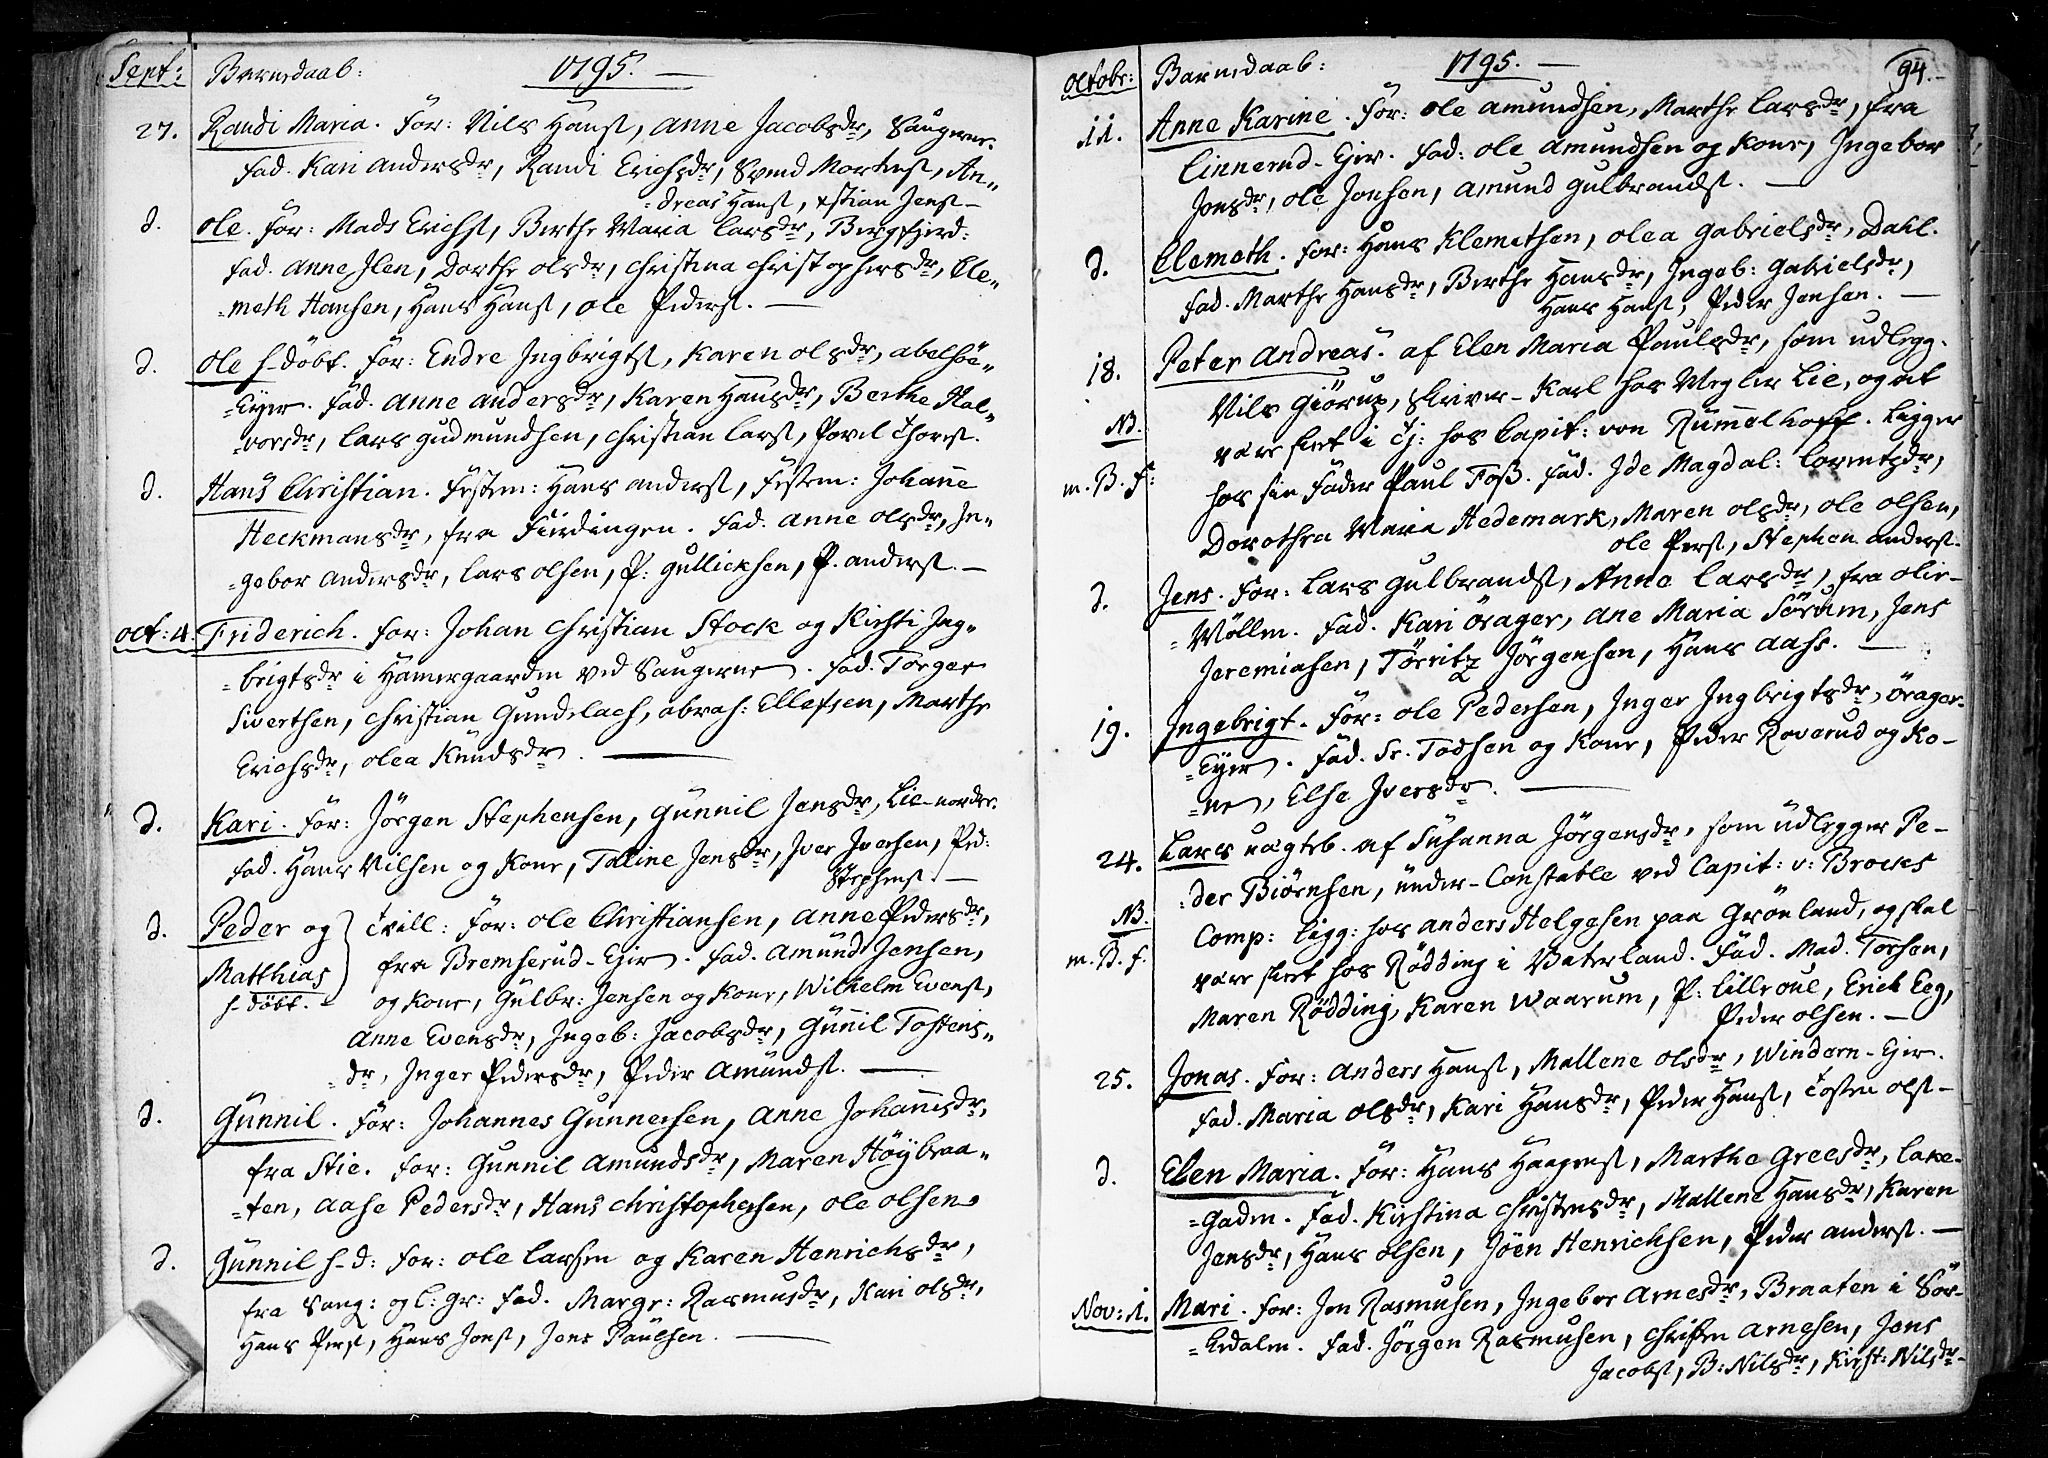 Sept: Barnedaab: 1795. —
27. Randi Maria. For: Nils Hanss, Anne Jacobsdr, Saugerne.
Fad. Kari Andersdr, Randi Erichsdr, Svend Mortens, An„
„dreas Hanss, xstian Jenss —
d. Ole. For: Mads Erichs, Berthe Maria Larsdr, Bergfierd:
Fad. Anne Ilen, Dorthe Olsdr, Christina Christophersdr, Cle„
„meth Hansen, Hans Hanss, Ole Peders. —
d. Ole h-döbt. For: Endre Ingbrigts, Karen Olsdr, Abelsöe„
„Eyer. Fad. Anne Andersdr, Karen Hansdr, Berthe Hal„
vorsdr, Lars Gudmundsen, Christian Lars, Povel Thors.
d. Hans Christian. Festem: Hans Anders, Festem: Johanne
Heckmansdr, fra Fierdingen. Fad. Anne Olsdr, In„
„gebor Andersdr, Lars Olsen, P: Gullichsen, P. Anders. —
Oct: 4. Friderich. For: Johan Christian Stock og Kirsti Ing„
„brigtsdr i Hamergaarden ved Saugerne. Fad. Torger
Siverthsen, Christian Gundelach, Abrah: Ellefsen, Marthe
Erichsdr, Olea Knudsdr. —
d. Kari. For: Jörgen Stephensen, Gunnil Jensdr, Lie-nordre.
Fad. Hans Nilsen og Kone, Talline Jensdr, Iver Iversen, Ped:
Stephens. —
d. Peder og Tvill: For: Ole Christiansen, Anne Pedersdr,
Matthias fra Bremserud-Eier. Fad. Amund Jensen,
h-döbt. og Kone, Gulbr: Jensen og Kone, Wilhelm Evens,
Anne Evensdr, Ingeb: Jacobsdr, Gunnil Tostens„
„dr, Inger Pedersdr, Peder Amunds. —
d. Gunnil. For: Johannes Gunnersen, Anne Johannisdr,
fra Stie. For: Gunnil Amundsdr, Maren Höybraa„
„ten, Aase Pedersdr, Hans Christophersen, Ole Olsen.
d. Gunnil h-d: For: Ole Larsen og Karen Henrichsdr,
fra Saug: og l: gr: Fad. Margr: Rasmusdr, Kari Olsdr,
Hans Pers, Hans Jons, Jens Paulsen. —
Octobr: Barnedaab: 1795. — 94.
11. Anne Karine. For: Ole Amundsen, Marthe Larsdr, fra
Linnerud-Eier. Fad: Ole Amundsen og Kone, Ingebor
Jonsdr, Ole Jonsen, Amund Gulbrands. —
d. Clemeth. For: Hans Klemetsen, Olea Gabrielsdr, Dahl.
Fad. Marthe Hansdr, Berthe Hansdr, Ingeb: Gabrielsdr,
Hans Hanss, Peder Jensen. —
18. Peter Andreas. af Elen Maria Paulsdr, som udlegg.
Nils Giörup, Skriver-Karl hos Megler Lie, og at
NB. være skeet i Tj: hos Capit: von Rümmelhoff. Ligger
m. B. F: hos sin Fader Paul Foss. Fad. Ide Magdal: Lorentzdr,
Dorothea Maria Hedemark, Maren Olsdr, Ole Olsen,
Ole Pers, Stephen Anders.
d. Jens. For: Lars Gulbrands, Anne Larsdr, fra Olie-
„Möllen. Fad. Kari Örager, Ane Maria Sörum, Jens
Jeremiasen, Törritz Jörgensen, Hans Aass. —
19. Ingebrigt. For: Ole Pedersen, Inger Ingbrigtsdr, Örager-
„Eyer. Fad. Sr. Todsen og Kone, Peder Roverud og Ko-
„ne, Else Iversdr. —
24. Lars uægteb. af Susanna Jörgensdr, som udlegger Pe-
„der Biörnsen, under-Constable ved Capit: v: Brocks
NB. Comp: Ligg: hos Anders Helgesen paa Grönland, og skal
m. B. f. være skeet hos Rödding i Vaterland. Fad. Mad. Torsen,
Maren Rödding, Karen Waarum, P: Lilleoue, Erich Eeg,
Peder Olsen. —
25. Jonas. For: Anders Hanss, Mallene Olsdr, Windern-Eier.
Fad. Maria Olsdr, Kari Hansdr, Peder Hanss, Tosten Ols —
d. Elen Maria. For: Hans Haagens, Marthe Greesdr, Lake-
„Gaden. Fad. Kirstina Christensdr, Mallene Hansdr, Karen
Jensdr, Hans Olsen, Jöen Henrichsen, Peder Anders. —
Nov: 1. Mari. For: Jon Rasmusen, Ingebor Arnesdr, Braaten i Sör-
„kedalen. Fad. Jörgen Rasmusen, Christen Arnesen, Jens
Jacobs, B: Nilsdr, Kirst: Nilsdr —